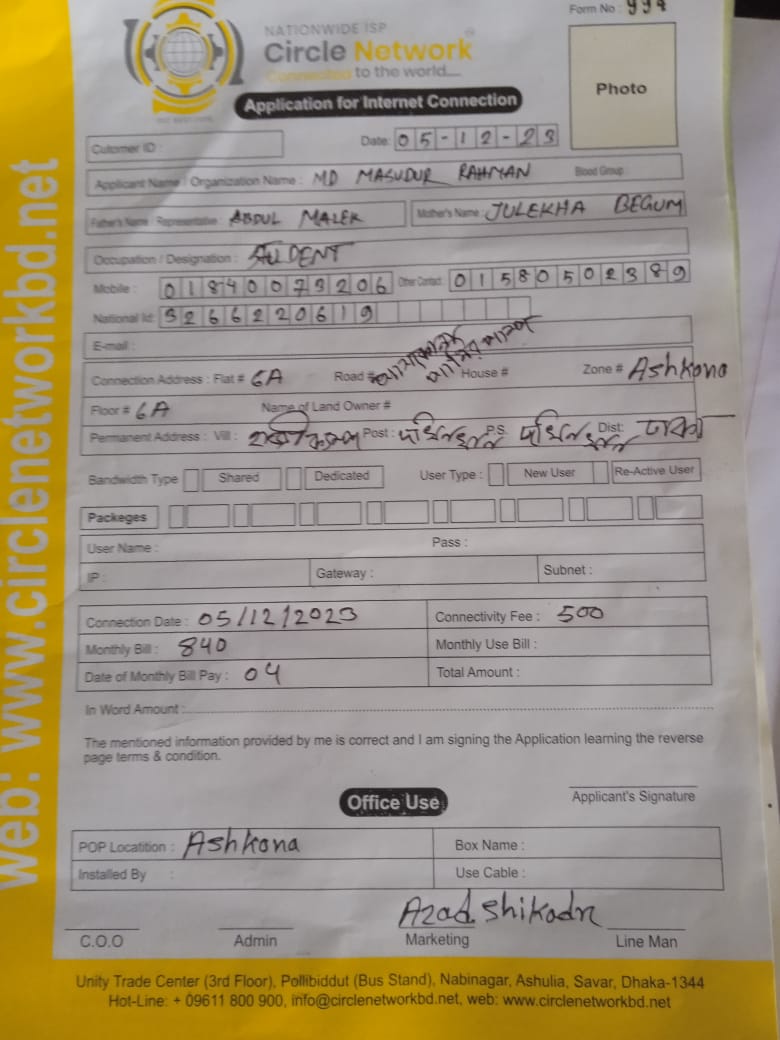 Form No : 994
NATIONWIDE ISP
Circle Network
Connected to the world....
Application for Internet Connection
Photo
Cutomer ID :
Date: 05-12-23
Applicant Name / Organization Name : MD MASUDUR RAHMAN Blood Group :
Father's Name / Representative : ABDUL MALEK Mother's Name : JULEKHA BEGUM
Occupation / Designation : STUDENT
Mobile : 01840073206 Other Contact : 01580502389
National Id: 3266220619
E-mail :
Connection Address : Flat # 6A Road # House # Zone # Ashkona
Floor # 6A Name of Land Owner #
Permanent Address : Vill : Post : P.S. Dist: ঢাকা
Bandwidth Type Shared Dedicated User Type : New User Re-Active User
Packeges
User Name : Pass :
IP : Gateway : Subnet :
Connection Date : 05/12/2023 Connectivity Fee : 500
Monthly Bill : 840 Monthly Use Bill :
Date of Monthly Bill Pay : 04 Total Amount :
In Word Amount :
The mentioned information provided by me is correct and I am signing the Application learning the reverse
page terms & condition.
Applicant's Signature
Office Use
POP Locatition : Ashkona Box Name :
Installed By : Use Cable :
Azad Shikadr
C.O.O Admin Marketing Line Man
Unity Trade Center (3rd Floor), Pollibiddut (Bus Stand), Nabinagar, Ashulia, Savar, Dhaka-1344
Hot-Line: + 09611 800 900, info@circlenetworkbd.net, web: www.circlenetworkbd.net
web: www.circlenetworkbd.net